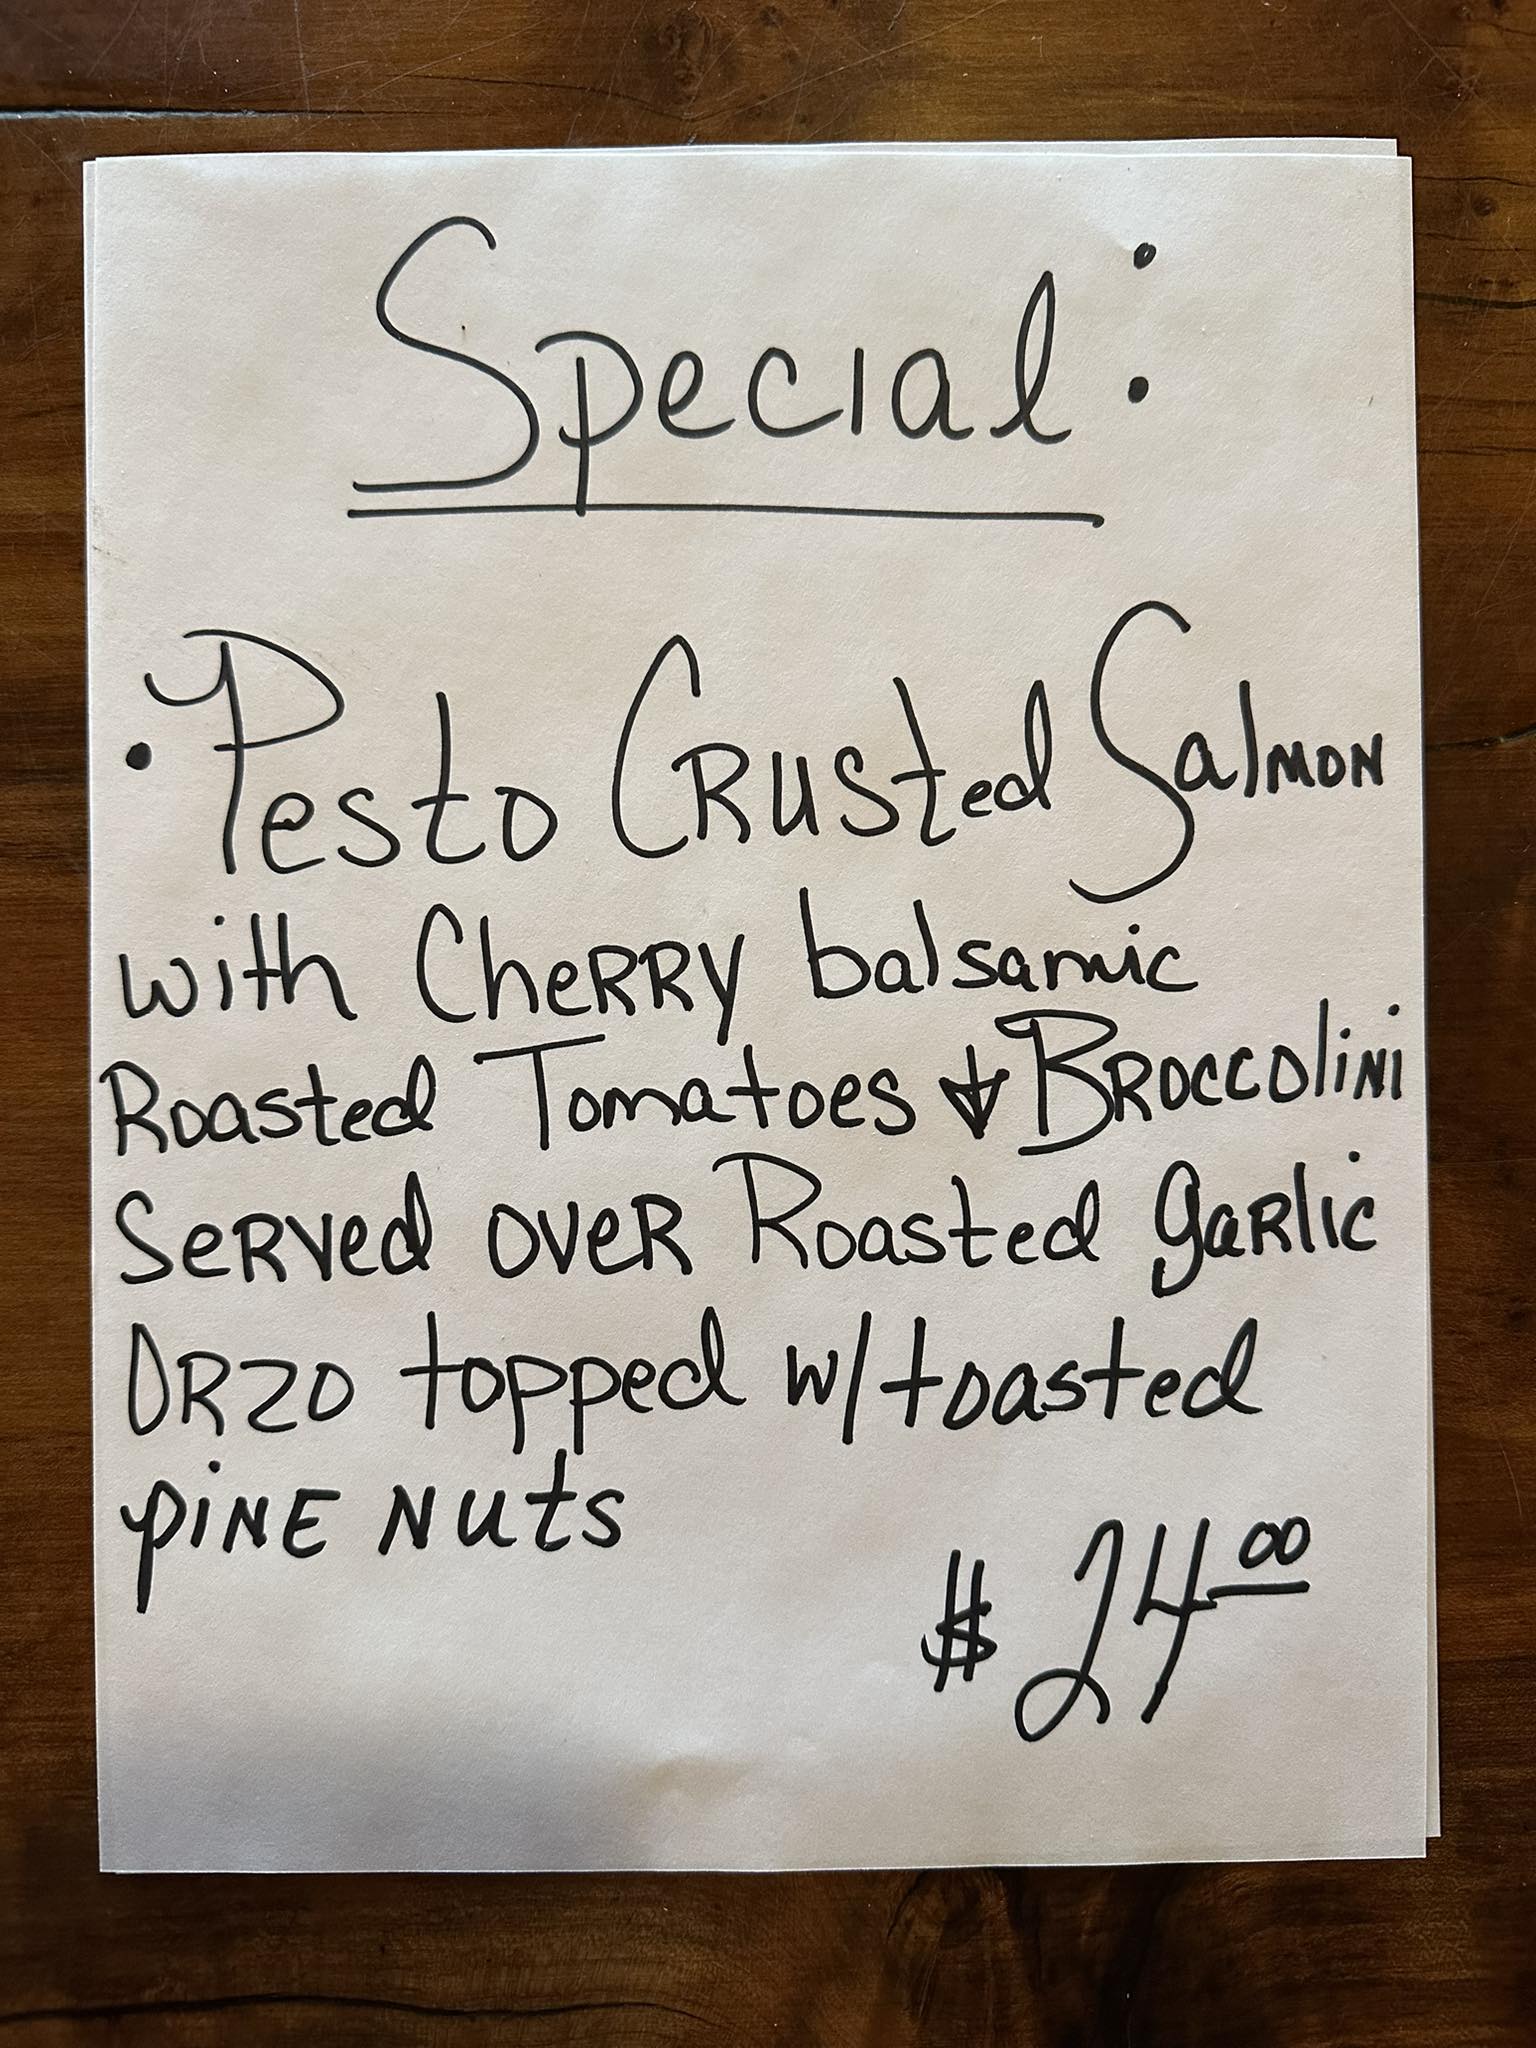 Special:
• Pesto Crusted Salmon
with Cherry balsamic
Roasted Tomatoes & Broccolini
Served over Roasted garlic
Orzo topped w/ toasted
pine nuts
$ 24.00